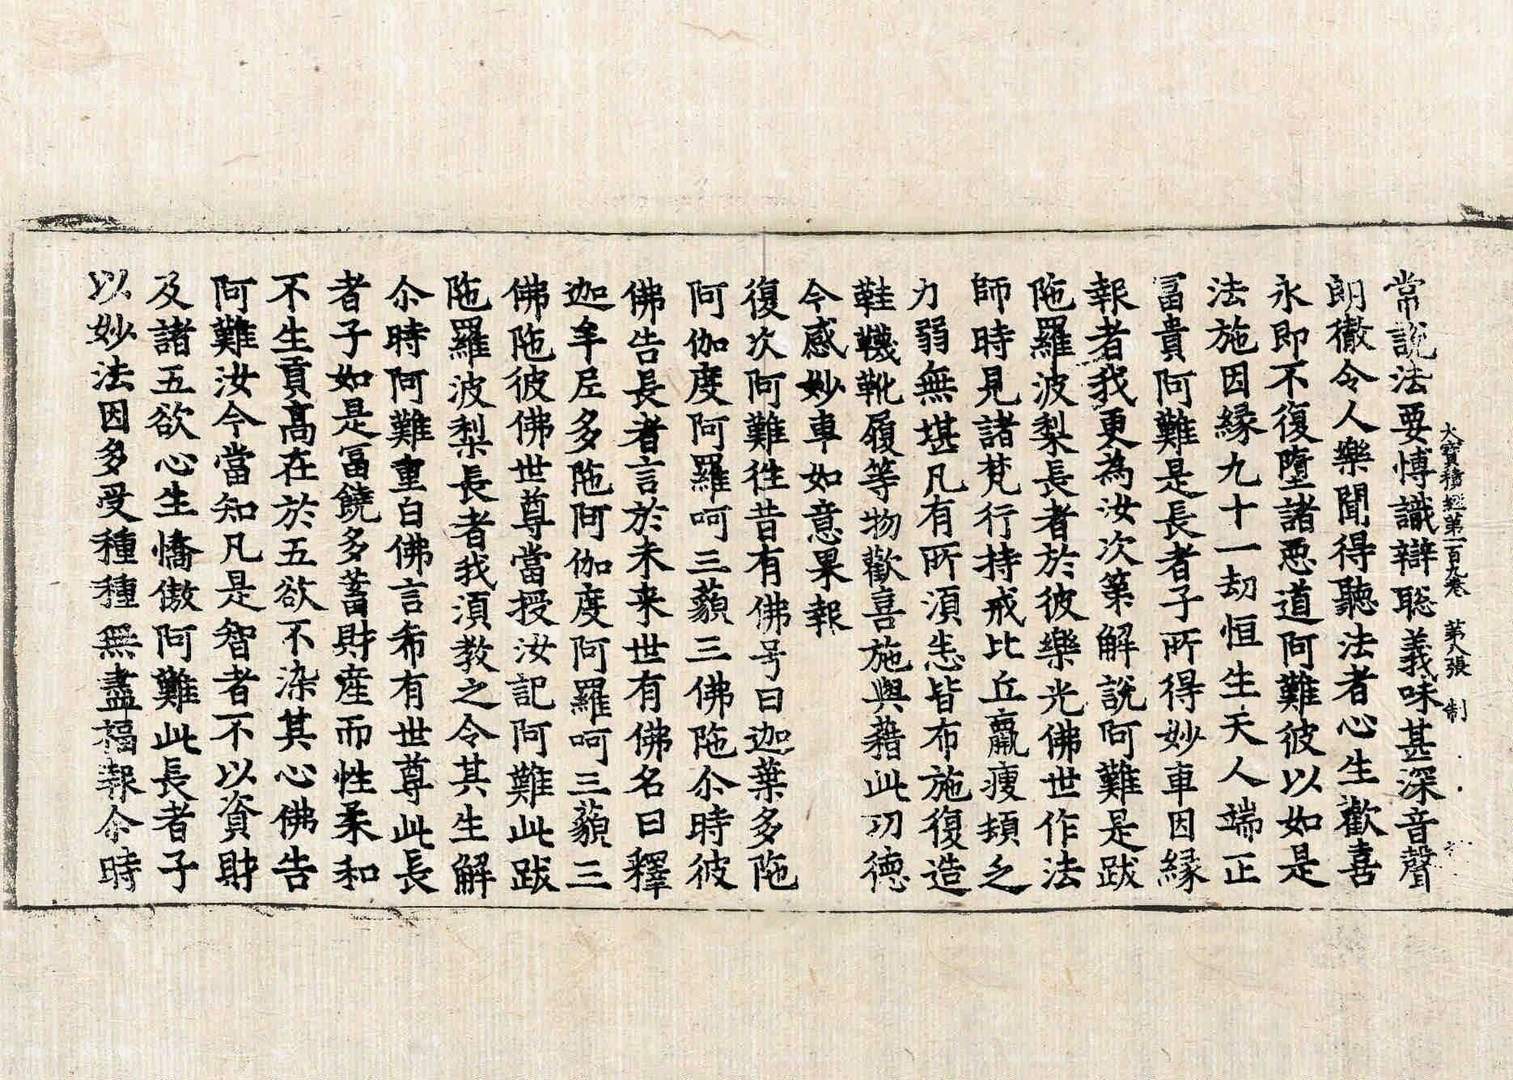 大寶積經第一百九卷 第八張 制
常說法要博識辯聡義味甚深音聲
朗徹令人樂聞得聽法者心生歡喜
永即不復墮諸惡道阿難彼以如是
法施因緣九十一劫恒生天人端正
冨貴阿難是長者子所得妙車因緣
報者我更為汝次第解說阿難是跋
陁羅波梨長者於彼樂光佛世作法
師時見諸梵行持戒比丘羸瘦頬乏
力弱無堪凡有所湏悉皆布施復造
鞋韈靴履等物歡喜施與藉此功德
今感妙車如意果報
復次阿難徃昔有佛号曰迦葉多陁
阿伽度阿羅呵三藐三佛陁尒時彼
佛告長者言於未来世有佛名曰釋
迦牟尼多陁阿伽度阿羅呵三藐三
佛陁彼佛世尊當授汝記阿難此跋
陁羅波梨長者我湏教之令其生解
尒時阿難重白佛言希有世尊此長
者子如是冨饒多蓄財産而性柔和
不生貢高在於五欲不染其心佛告
阿難汝今當知凡是智者不以資財
及諸五欲心生憍傲阿難此長者子
以妙法因多受種種無盡福報尒時